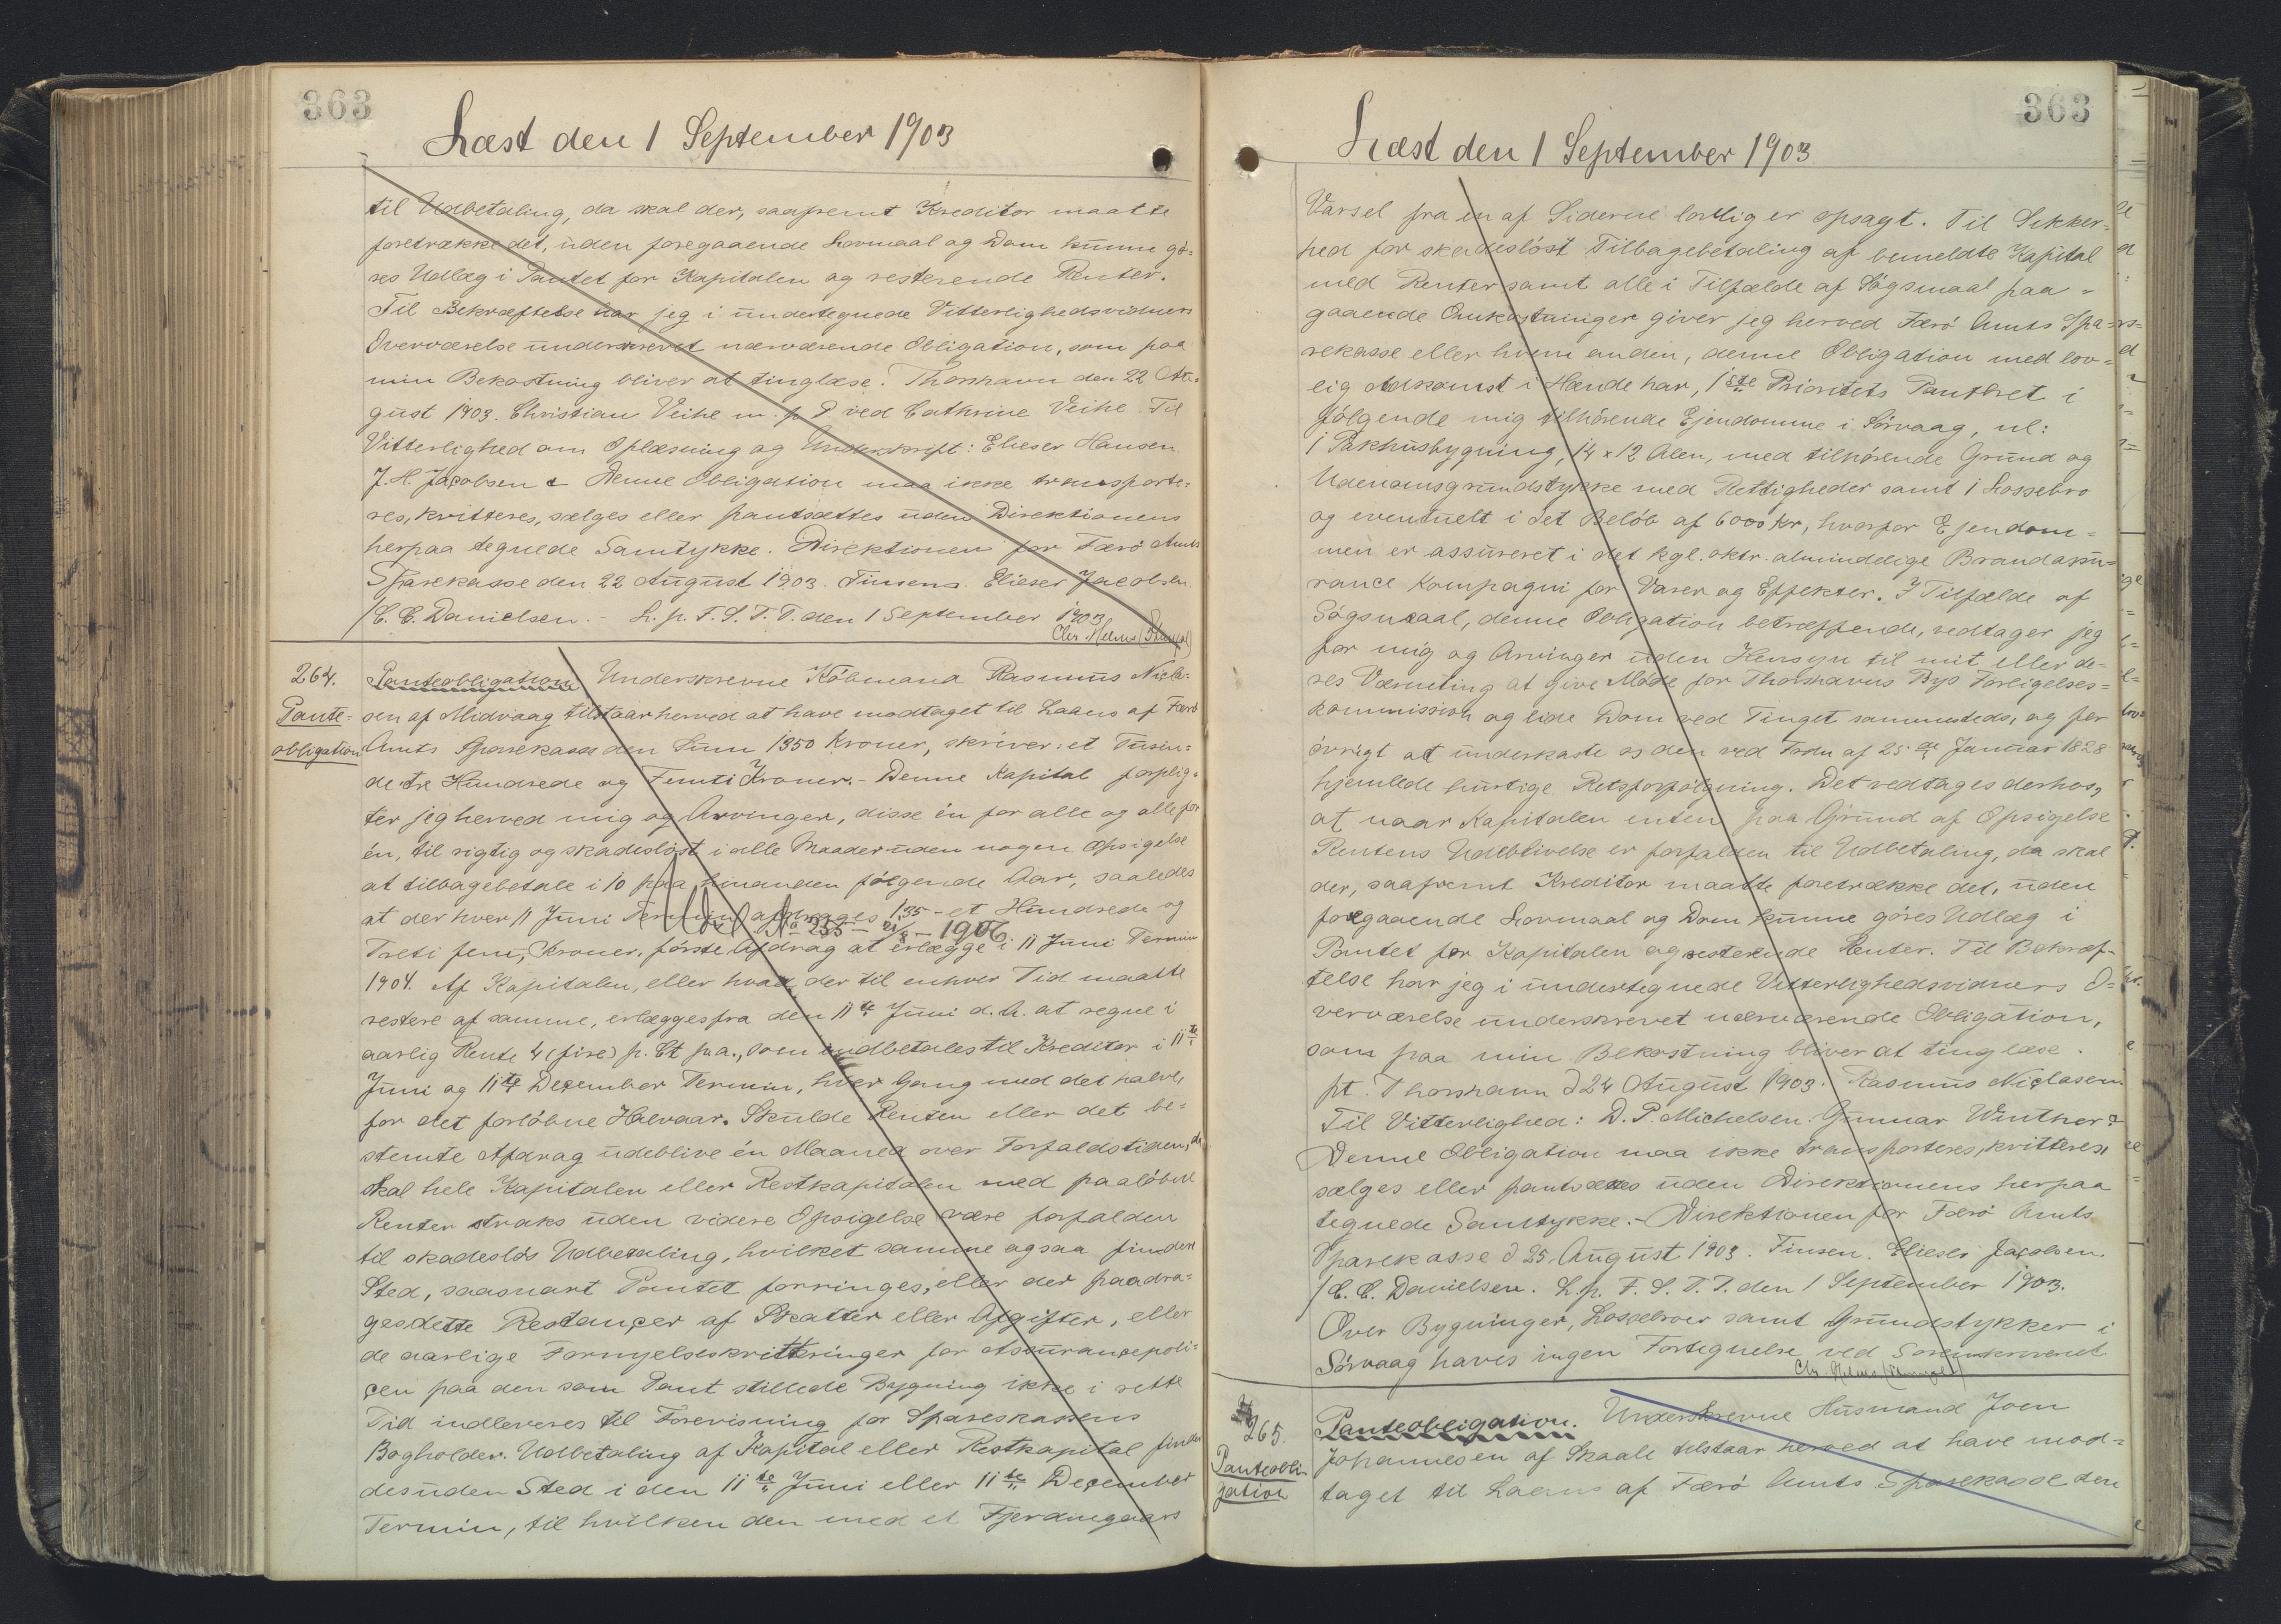 363
Læst den 1 September 1903
til Udbetaling, da skal der, saafremt Kreditor maatte
foretrække det, uden foregaaende Lovmaal og Dom kunne gö=
res Udlæg i Pantet for Kapitalen og resterende Renter.
Til Bekræftelse har jeg i undertegnede Vitterlighedsvidners
Overværelse underskrevet nærværende Obligation, som paa
min Bekostning bliver at tinglæse. Thorshavn den 22 Au=
gust 1903. Christian Veihe m. p. P. ved Cathrine Veihe. Til
Vitterlighed om Oplæsning og Underskrift: Elieser Hansen
J. H. Jacobsen & Denne Obligation maa ikke transporte=
res, kvitteres, sælges eller pantsættes uden Direktionens
herpaa tegnede Samtykke. Direktionen for Færö Amts
Sparekasse den 22 August 1903. Finsen. Elieser Jacobsen.
/C. C. Danielsen. - L. p. F. S. T. T. den 1 September 1903
Chr. Helms (Stempel)
264.
Pante=
obligation
Panteobligation Underskrevne Köbmand Rasmus Nicla=
sen af Midvaag tilstaar herved at have modtaget til Laans af Færö
Amts Sparekasse den Sum 1350 Kroner, skriver: et Tusin=
de tre Hundrede og Femti Kroner. - Denne Kapital forplig=
ter jeg herved mig og Arvinger, disse én for alle og alle for
én, til rigtig og skadeslöst i alle Maader uden nogen Opsigelse
at tilbagebetale i 10 paa hinanden fölgende Aar, saaledes
at der hver 11 Juni Termin afdrages 135 - et Hundrede og
Udsl. No 235 - 21/8 - 1906
Treti fem, Kroner, förste Afdrag at erlægge i 11 Juni Termin
1904. Af Kapitalen, eller hvad der til enhver Tid maatte
restere af samme, erlægges fra den 11te Juni d. A. at regne i
aarlig Rente 4 (fire) p. Ct p. a., som indbetales til Kreditor i 11te
Juni og 11te December Termin, hver Gang med det halve,
for det forlöbne Halvaar. Skulde Renten eller det be=
stemte Afdrag udeblive én Maaned over Forfaldstiden, da
skal hele Kapitalen eller Restkapitalen med paalöbne
Renter straks uden videre Opsigelse være forfalden
til skadeslös Udbetaling, hvilket samme ogsaa finder
Sted, saasnart Pantet forringes, eller der paadra=
ges dette Restancer af Skatter eller Afgifter, eller
de aarlige Fornyelseskvitteringer for Assurancepoli=
cen paa den som Pant stillede Bygning ikke i rette
Tid indleveres til Forevisning for Sparekassens
Bogholder. Udbetaling af Kapital eller Restkapital finder
desuden Sted i den 11te Juni eller 11te December
Termin, til hvilken den med et Fjerdingaars
363
Læst den 1 September 1903
Varsel fra en af Siderne lovlig er opsagt. Til Sikker=
hed for skadeslöst Tilbagebetaling af bemeldte Kapital
med Renter samt alle i Tilfælde af Sögsmaal paa=
gaaende Omkostninger giver jeg herved Færö Amts Spa=
rekasse eller hvem anden, denne Obligation med lov=
lig Adkomst i Hænde har, 1ste Prioritets Panteret i
fölgende mig tilhörende Ejendomme i Sörvaag, nl:
1 Pakhusbygning, 14 x 12 Alen, med tilhörende Grund og
Udenomsgrundstykke med Rettigheder samt 1 Lossebro
og eventuelt i det Belöb af 6000 Kr, hvorfor Ejendom=
men er assureret i det kgl. oktr. almindelige Brandassu=
rance Kompagni for Varer og Effekter. I Tilfælde af
Sögsmaal, denne Obligation betræffende, vedtager jeg
for mig og Arvinger uden Hensyn til mit eller de=
res Værneting at give Möde for Thorshavns Bys Forligelses=
kommission og lide Dom ved Tinget sammesteds, og for
övrigt at underkaste os den ved Frdn af 25de Januar 1828
hjemlede hurtige Retsforfölgning. Det vedtages derhos,
at naar Kapitalen enten paa Grund af Opsigelse
Rentens Udeblivelse er forfalden til Udbetaling, da skal
der, saafremt Kreditor maatte foretrække det, uden
foregaaende Lovmaal og Dom kunne göres Udlæg i
Pantet for Kapitalen og resterende Renter. Til Bekræf=
telse har jeg i undertegnede Vitterlighedsvidners O=
verværelse underskrevet nærværende Obligation,
som paa min Bekostning bliver at tinglæse.
pt. Thorshavn d 24 August 1903. Rasmus Niclasen.
Til Vitterlighed: D. P. Michelsen. Gunnar Winther &
Denne Obligation maa ikke transporteres, kvitteres,
sælges eller pantsættes uden Direktionens herpaa
tegnede Samtykke. - Direktionen for Færö Amts
Sparekasse d 25. August 1903. Finsen. Elieser Jacobsen.
/C. C. Danielsen. L. p. F. S. T. T. den 1 September 1903.
Over Bygninger, Lossebroer samt Grundstykker i
Sörvaag haves ingen Fortegnelse ved Sorenskriveriet
Chr. Helms (Stempel)
265.
Panteobli=
gation
Panteobligation. Underskrevne Husmand Joen
Johannesen af Skaale tilstaar herved at have mod=
taget til Laans af Færö Amts Sparekasse den